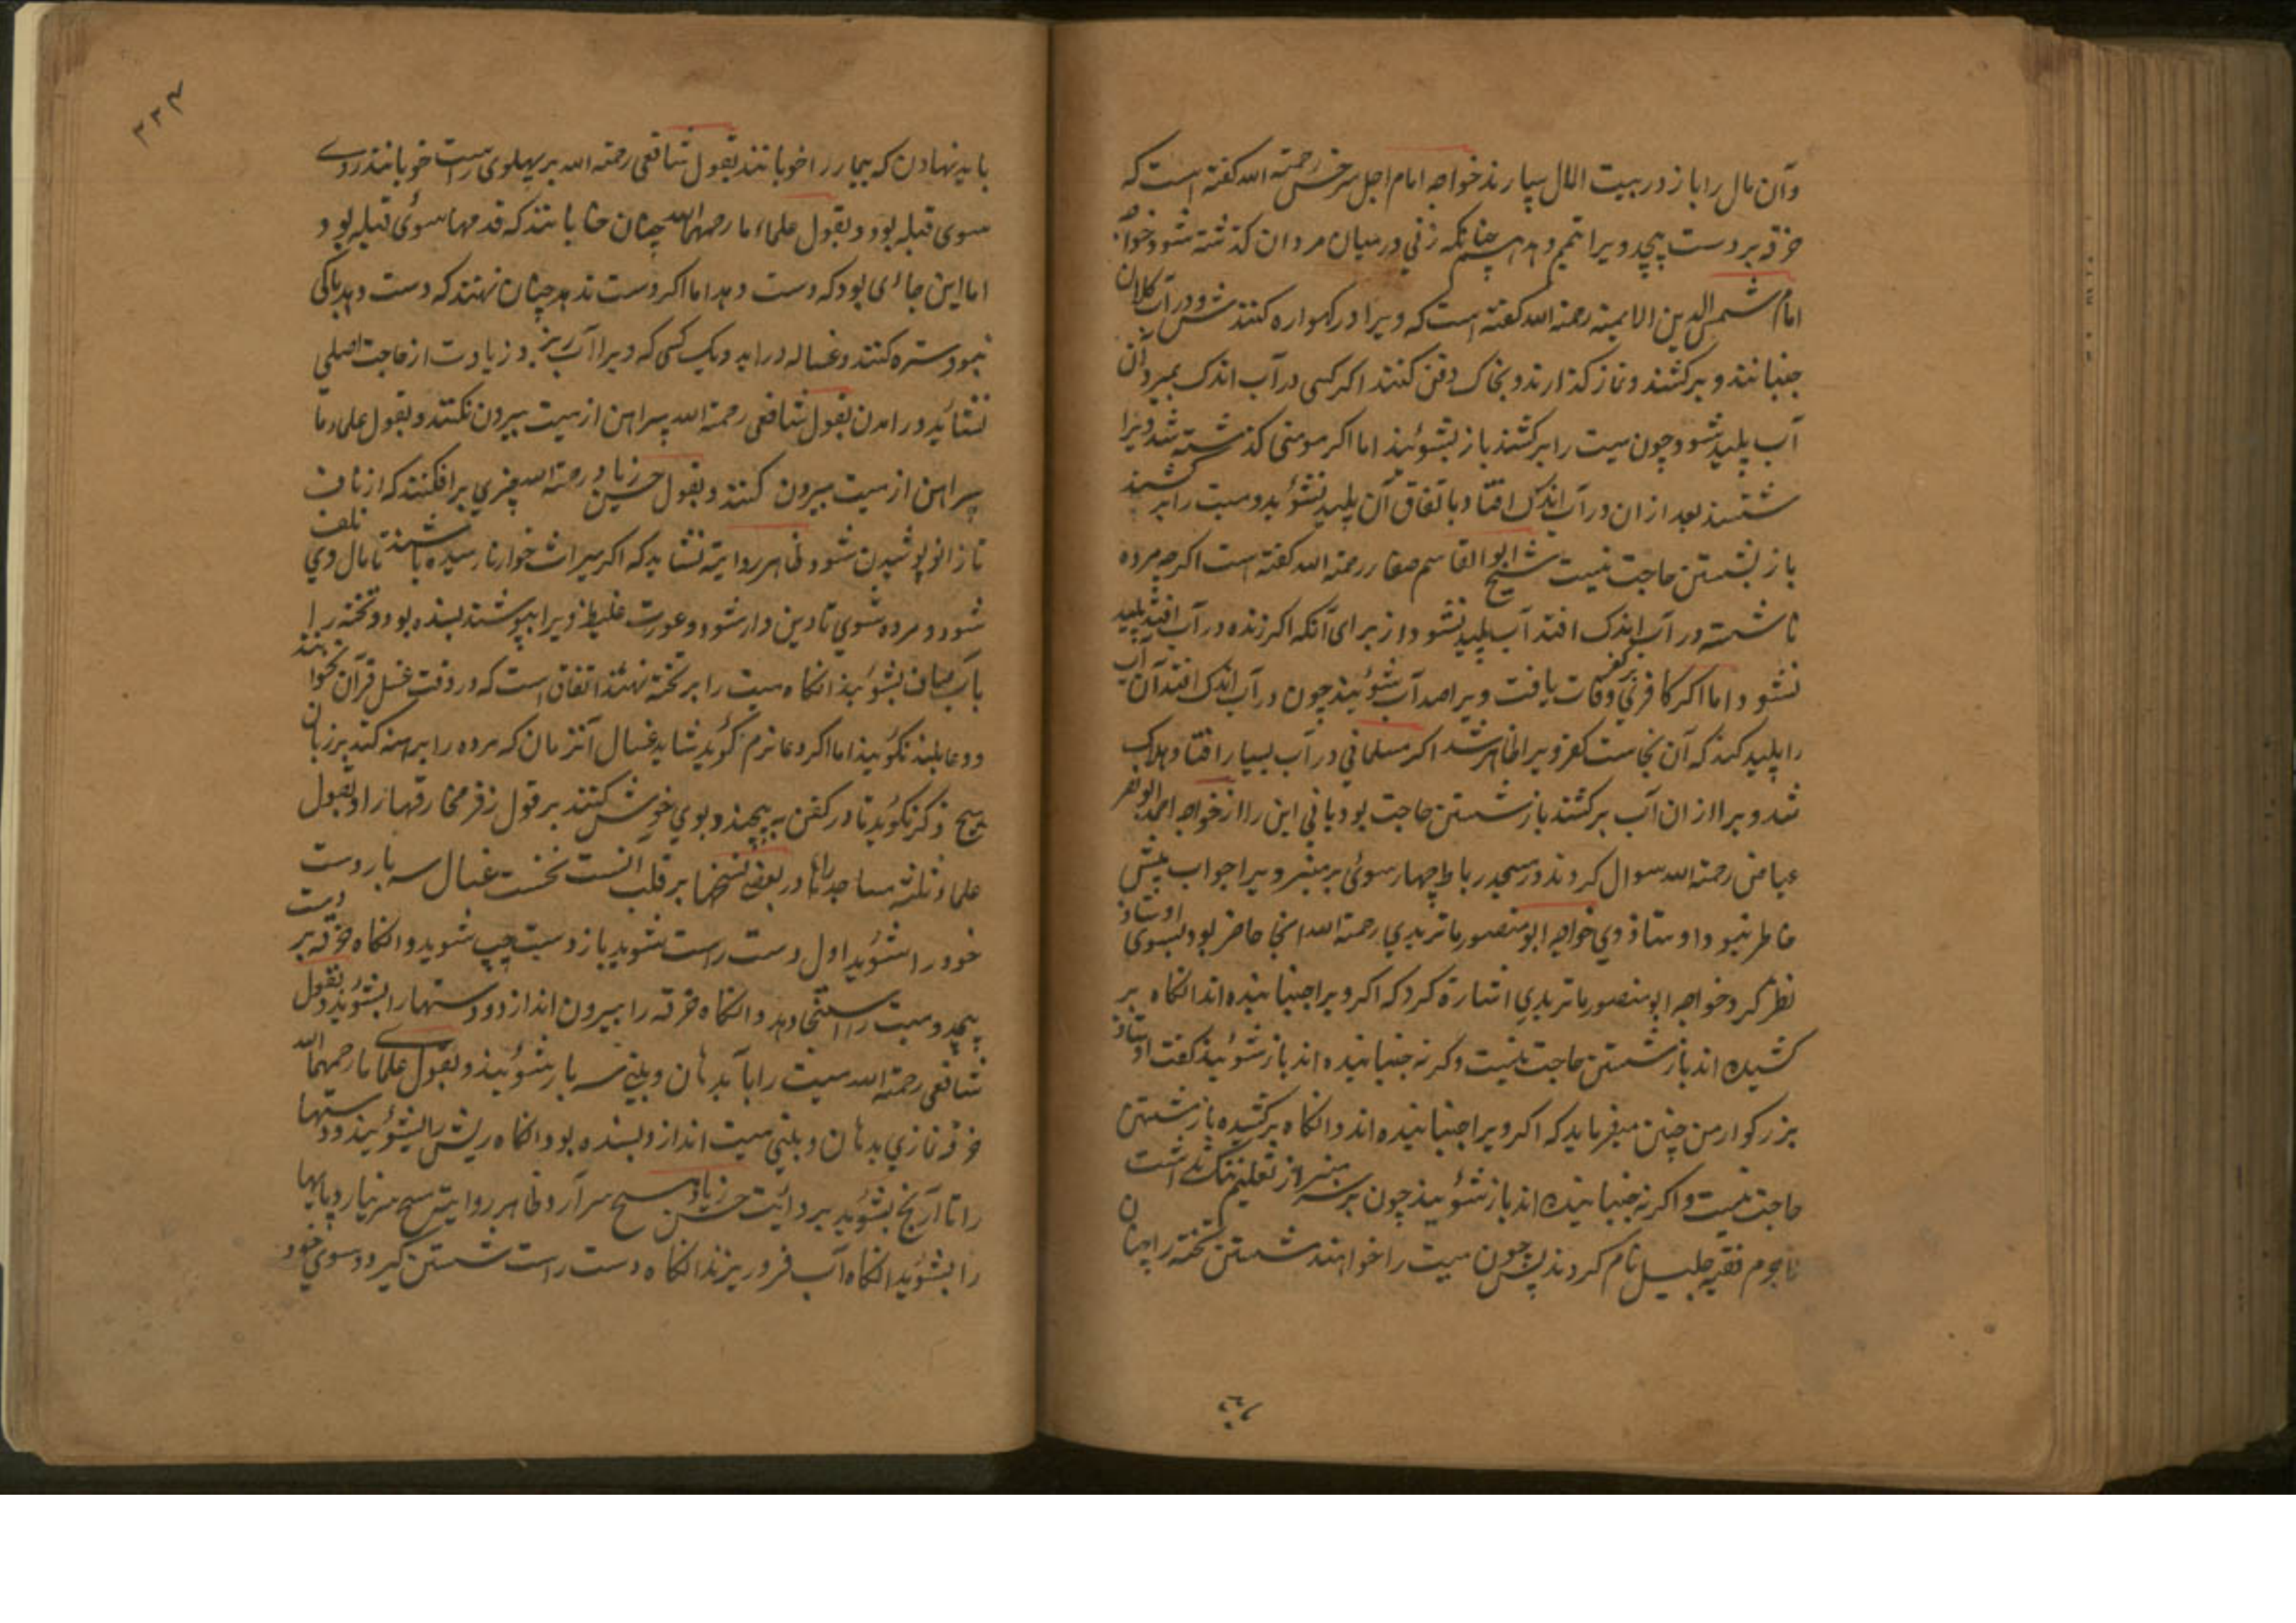 وآن مال را باز در بیت المال سپارند خواجه امام اجل سرخسی رحمة الله گفته است که
خرقه بر دست پیچد ویرا تیمم دهد همچنانکه زنی در میان مردان گذشته شود خواجه
امام شمس الدین الایمه رحمة الله گفته است که ویرا در گهواره کنند و در آب کلان
جنبانند و برکشند و نماز گذارند و بخاک دفن کنند اگر کسی در آب اندک بمیرد آن
آب پلید شود چون میت را برکشند باز بشویند اما اگر مومنی گذشته شد ویرا
شستند بعد ازان در آب اندک افتاد باتفاق آن پلید نشود و میت را بر کشند
باز بشستن حاجت نیست شیخ ابو القاسم صفار رحمة الله گفته است اگرچه مرده
ناشسته در آب اندک افتد آب پلید نشود از برای آنکه اگر زنده در آب افتد پلید
نشود اما اگر کافری وفات یافت ویرا صد آب بشویند چون در آب اندک افتد آن آب
را پلید کند که آن نجاست کفر ویرا ظاهر شد اگر مسلمانی در آب بسیار افتاد و هلاک
شد ویرا ازان آب برکشند باز شستن حاجت بود یا نی این را از خواجه احمد ابو نصر
عیاض رحمة الله سوال کردند در مسجد رباط چهار سوی بر منبر ویرا جواب پیش
خاطر نبود اوستاد وی خواجه ابو منصور ماتریدی رحمة الله انجا حاضر بود بسوی اوستاد
نظر کرد خواجه ابو منصور ماتریدی اشارة کرد که اگر ویرا جنبانیده اند انگاه بر
کشیده اند باز شستن حاجت نیست و گرنه جنبانیده اند باز شویند گفت اوستاد
بزرگوار من چنین میفرماید که اگر ویرا جنبانیده اند و انگاه برکشیده باز شستن
حاجت نیست و اگر نه جنبانیده اند باز شویند چون بر سر منبر از تعلیم ننگ نداشت
لاجرم فقیه جلیل نام کردند پس چون میت را خواهند شستن تخته را چنان
۳۳۴
باید نهادن که بیمار را خوابانند بقول شافعی رحمة الله بر پهلوی راست خوابانند روی
سوی قبله بود و بقول علماء ما رحمهم الله چنان خابانند که قدمها سوی قبله بود
اما این جائی بود که دست دهد اما اگر دست ندهد چنان نهند که دست دهد باکی
نبود ستره کنند و غساله دراید و یک کسی که ویرا آب ریزد و زیادت از حاجت اصلی
نشاید درامدن بقول شافعی رحمة الله پیراهن از میت بیرون نکنند و بقول علماء ما
پیراهن از میت بیرون کنند و بقول حسن زیاد رحمة الله چیزی برافکنند که از ناف
تا زانو پوشیدن شود و ظاهر روایة نشاید که اگر میراث خوار نارسیده باشند تا مال وی تلف
شود و مرده شوی تا دین دار شود و عورت غلیظ ویرا بپوشند بسنده بود و تخته را
بآب صاف بشویند انگاه میت را بر تخته نهند اتفاق است که در وقت غسل قرآن نخوانند
و دعا بلند نگویند اما اگر دعا نرم گوید شاید غسال آنزمان که مرده را برهنه کند بر زبان
هیچ ذکر نگوید تا در کفن بپیچند و بوی خوش کنند بر قول زفر مخارقها را و بقول
علماء ثلثه مساجد را اما در بعضی نسخها بر قلب انست نخست غسال سه بار دست
خود را شوید اول دست راست شوید باز دست چپ شوید و انگاه خرقه بر دست
پیچد و میت را استنجا دهد و انگاه خرقه را بیرون اندازد و دستها را بشوید و بقول
شافعی رحمة الله میت را با آب دهان و بینی سه بار بشویند و بقول علمای ما رحمهم الله
خرقه نمازی بدهان و بینی میت اندازد بسنده بود و انگاه ریش را بشویند و دستها
را تا آرنج بشوید بروایت حسن زیاد مسح سر آرد و ظاهر روایت مسح سر نیارد و پایها
را بشوید انگاه آب فرو ریزند انگاه دست راست شستن گیرد و سوی خود